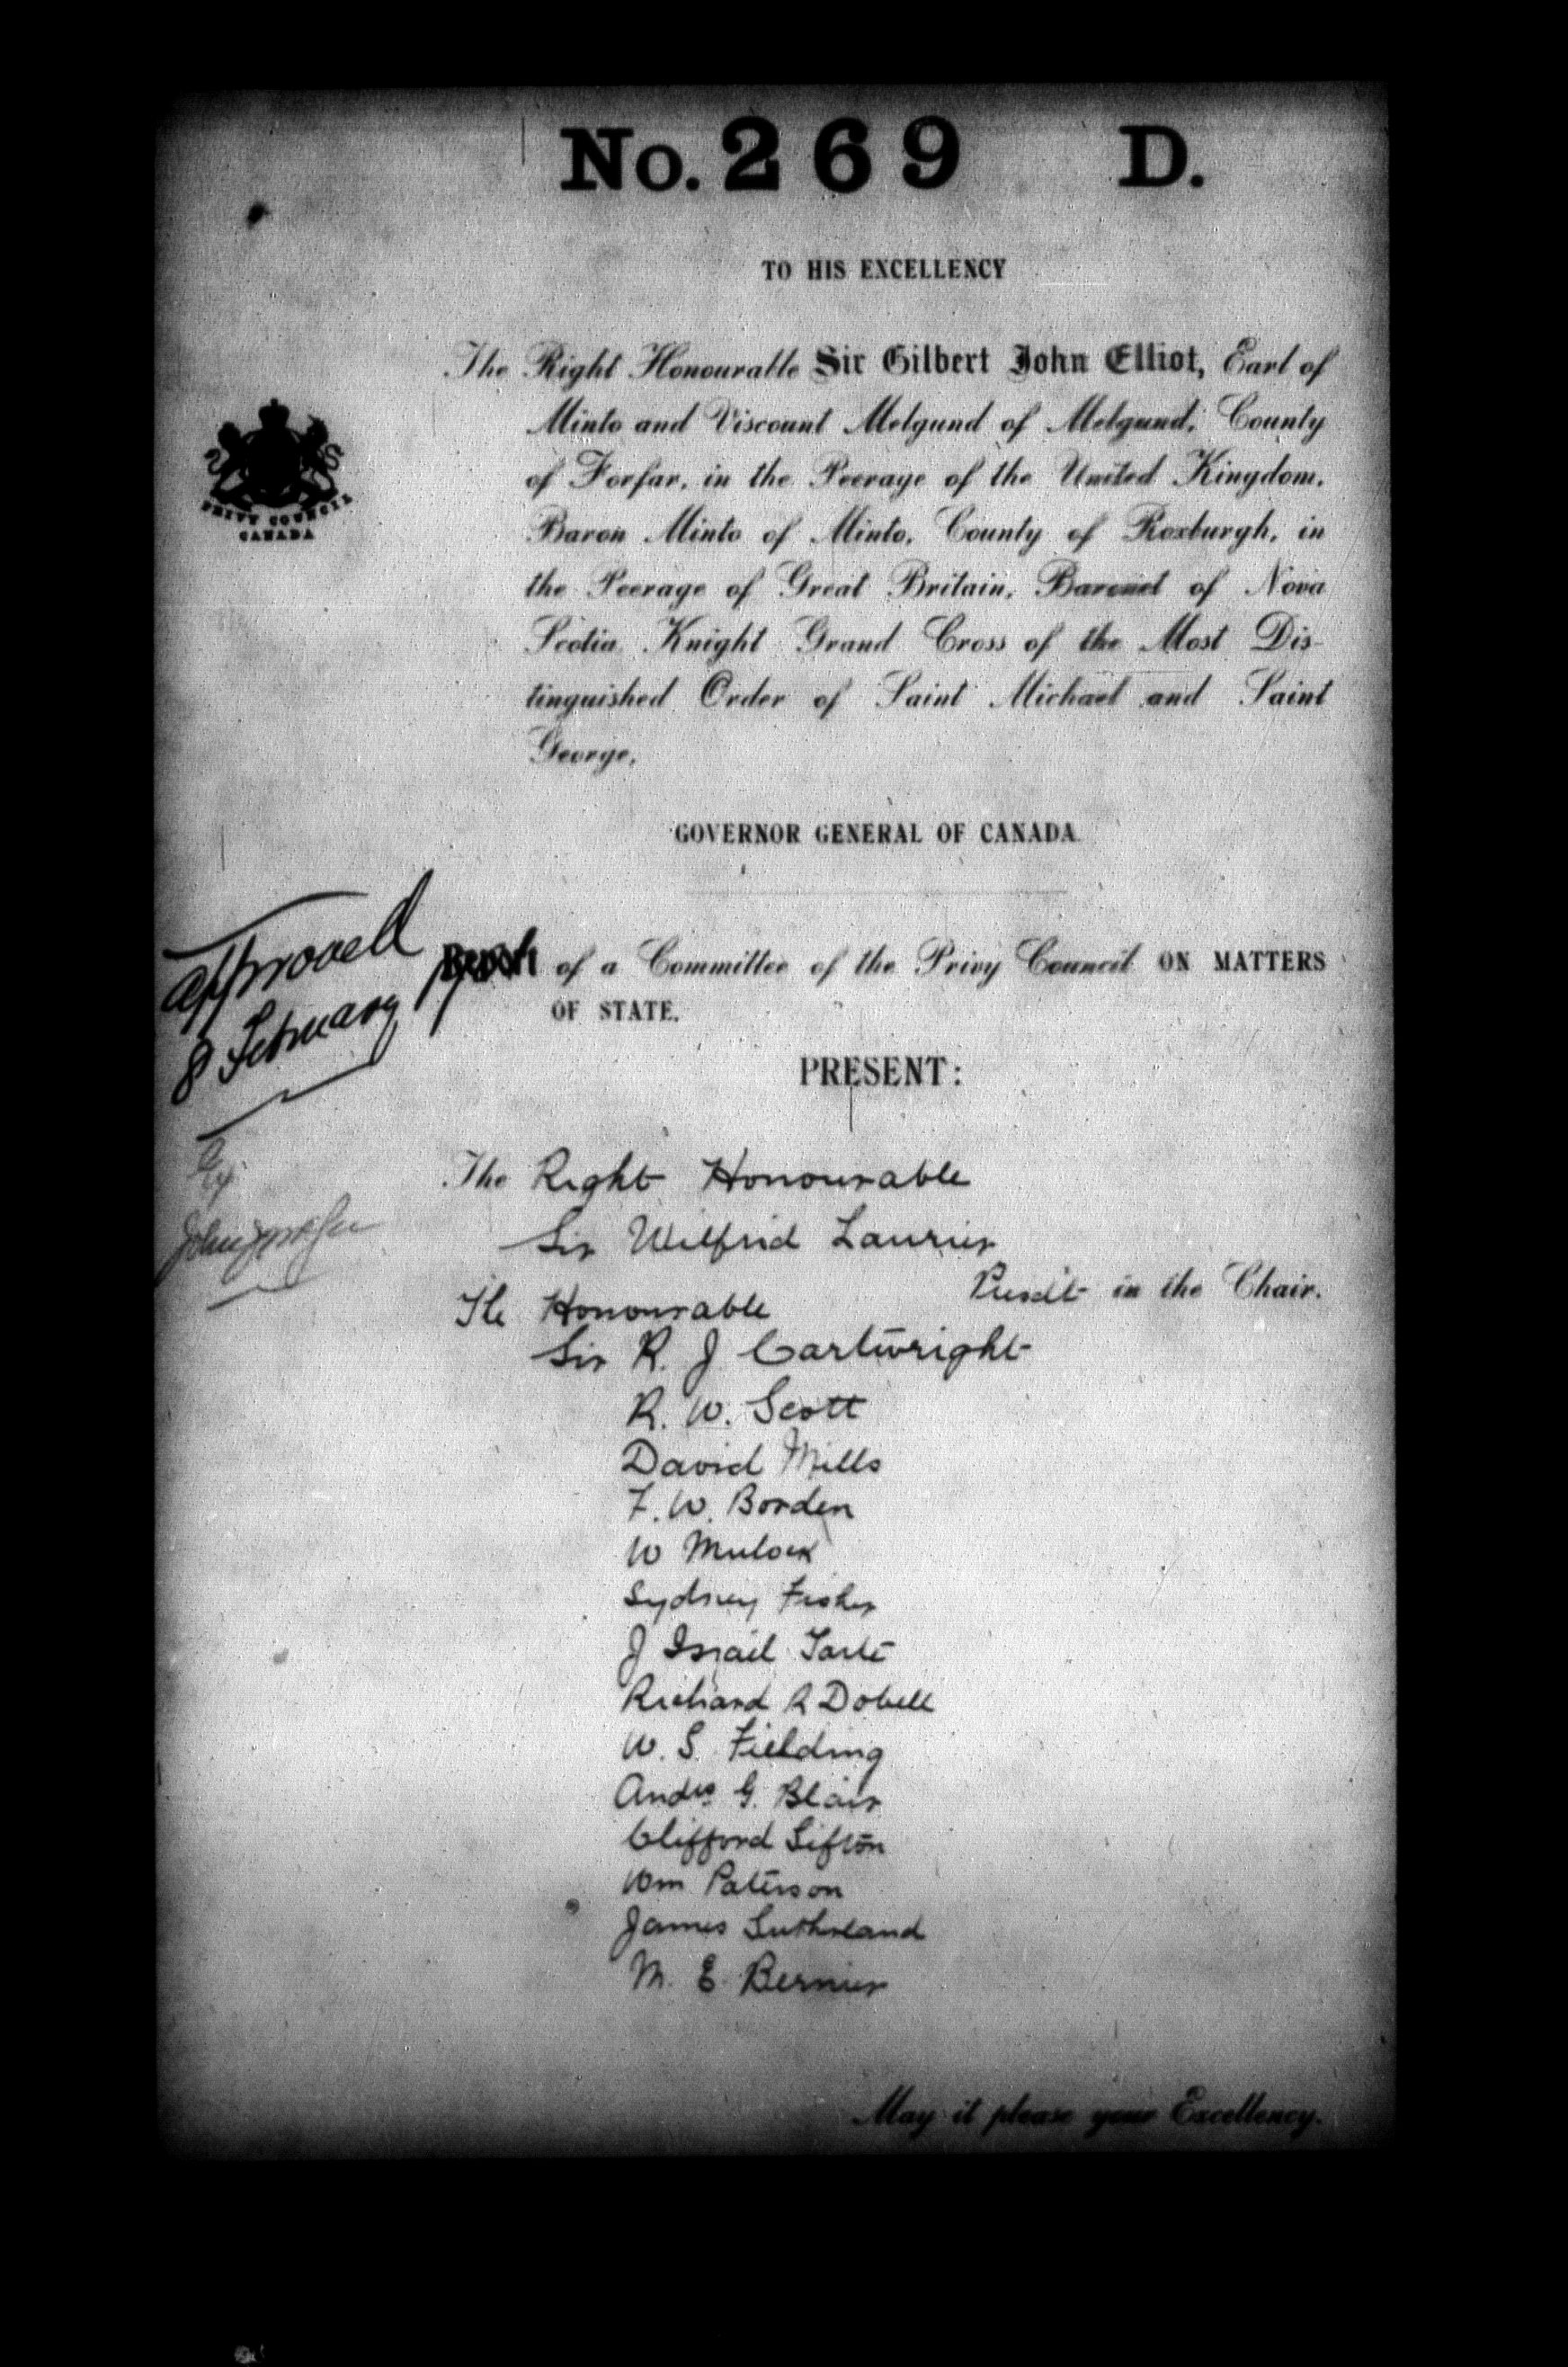 No. 269 D.
TO HIS EXCELLENCY
The Right Honourable Sir Gilbert John Elliot, Earl of
Minto and Viscount Melgund of Melgund, County
of Forfar, in the Peerage of the United Kingdom,
Baron Minto of Minto, County of Roxburgh, in
the Peerage of Great Britain, Baronet of Nova
Scotia, Knight Grand Cross of the Most Dis-
tinguished Order of Saint Michael and Saint
George,
PRIVY COUNCIL
CANADA
GOVERNOR GENERAL OF CANADA
approved
8 February
Report of a Committee of the Privy Council ON MATTERS
OF STATE.
PRESENT:
The Right Honourable
Sir Wilfrid Laurier
Presdt in the Chair.
The Honourable
Sir R. J Cartwright
R. W. Scott
David Mills
F. W. Borden
W Mulock
Sydney Fisher
J Israel Tarte
Richard R Dobell
W. S. Fielding
Andw G. Blair
Clifford Sifton
Wm Paterson
James Sutherland
M. E. Bernier
May it please your Excellency.